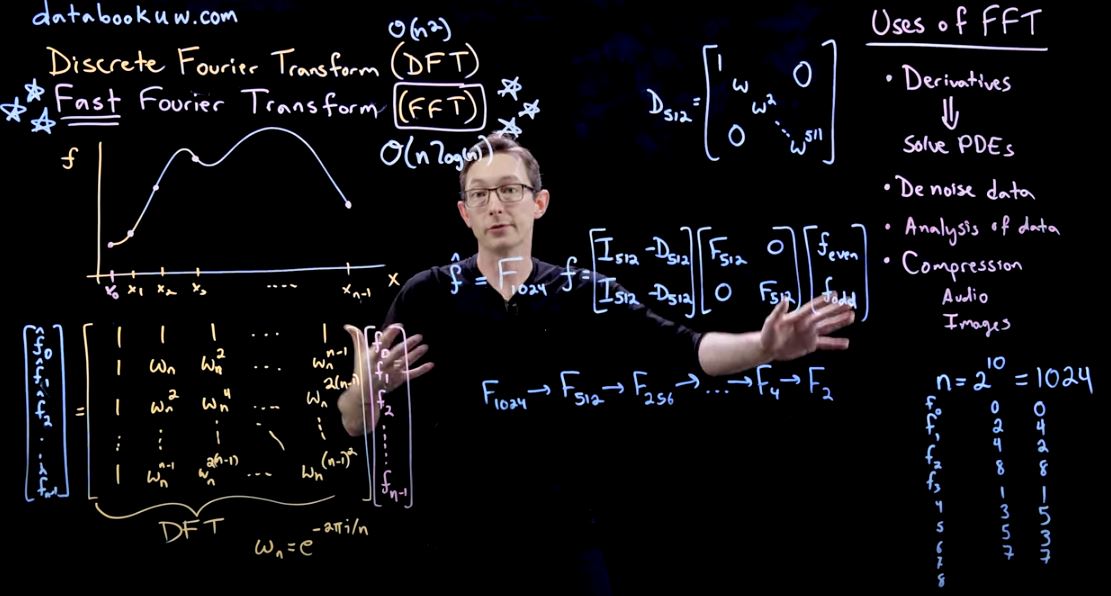 databookuw.com
O(n2)
Discrete Fourier Transform (DFT)
Fast Fourier Transform (FFT)
O(n log(n))
f
x
x₀ x₁ x₂ x₃ .... xₙ₋₁
[f̂₀ f̂₁ f̂₂ ⋮ f̂ₙ₋₁] =
1 1 1 ... 1
1 ωₙ ωₙ² ... ωₙⁿ⁻¹
1 ωₙ² ωₙ⁴ ... ωₙ²⁽ⁿ⁻¹⁾
⋮ ⋮ ⋮ ⋱ ⋮
1 ωₙⁿ⁻¹ ωₙ²⁽ⁿ⁻¹⁾ ... ωₙ⁽ⁿ⁻¹⁾²
[f₀ f₁ f₂ ⋮ fₙ₋₁]
DFT
ωₙ = e^(-2πi/n)
D₅₁₂ = [1 ω ω² ⋱ ω⁵¹¹]
0
0
f̂ = F₁₀₂₄ f = [I₅₁₂ -D₅₁₂] [F₅₁₂ 0] [f even]
[I₅₁₂ -D₅₁₂] [0 F₅₁₂] [f odd]
F₁₀₂₄ → F₅₁₂ → F₂₅₆ → ... → F₄ → F₂
Uses of FFT
• Derivatives
⇓
Solve PDEs
• Denoise data
• Analysis of data
• Compression
Audio
Images
n = 2¹⁰ = 1024
f₀ 0 0
f₁ 2 4
f₂ 4 2
f₃ 8 8
4 1 1
5 3 5
6 5 3
7 7 7
8